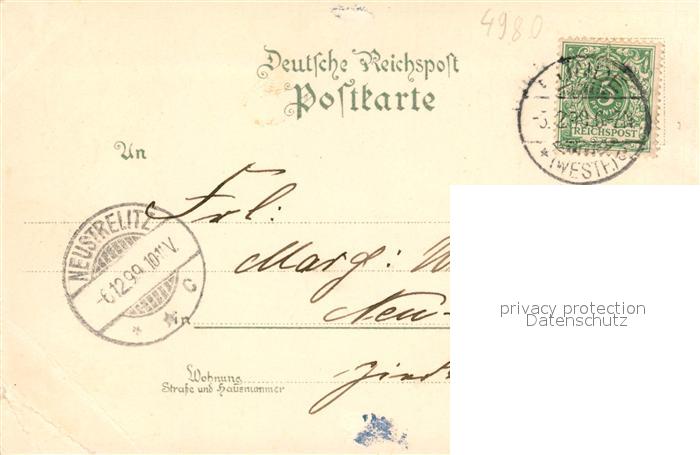 4980
Deutsche Reichspost
Postkarte
5
REICHSPOST
-5.12.99.
* (WESTF.)
An
Frl:
NEUSTRELITZ
-6.12.99.10-11V.
* * C
Marg:
Neu-
in
Wohnung
Straße und Hausnummer
privacy protection
Datenschutz